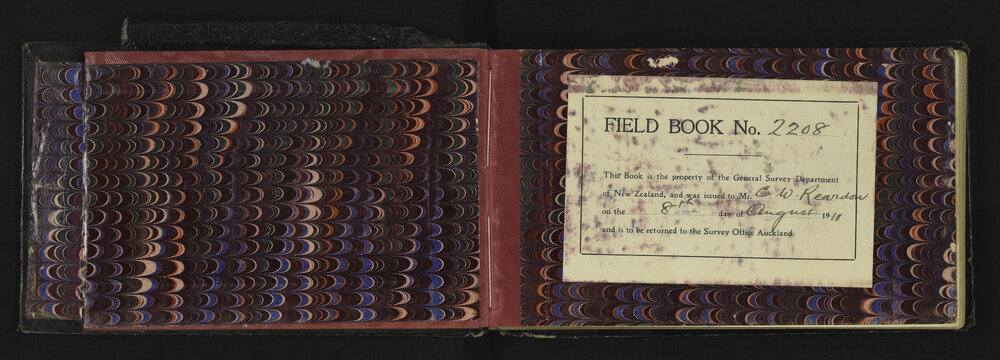 FIELD BOOK No. 2208
This Book is the property of the General Survey Department
of New Zealand, and was issued to Mr. C. W. Reardon
on the 8th day of August 1911
and is to be returned to the Survey Office Auckland.